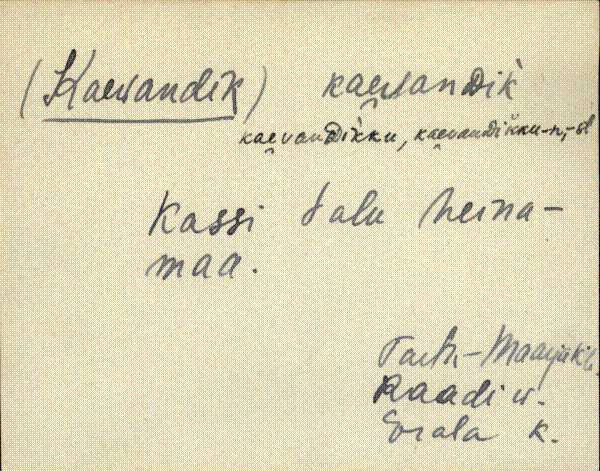 (Kaevandik) kaevanDik
kaevanDikku, kaevanDikku-n, -st
Kassi talu heina-
maa.
Tartu-Maarja kih.
Raadi v.
k.